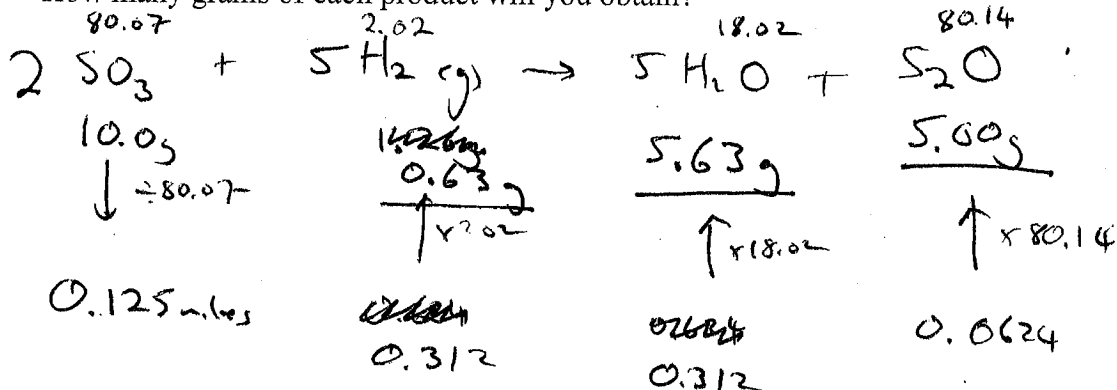 How many grams of each product will you obtain?
80.07 2.02 18.02 80.14
2 SO₃ + 5 H₂ (g) → 5 H₂O + S₂O
10.0g 0.63g 5.63g 5.00g
÷80.07 ×2.02 ×18.02 ×80.14
0.125 moles 0.312 0.312 0.0624